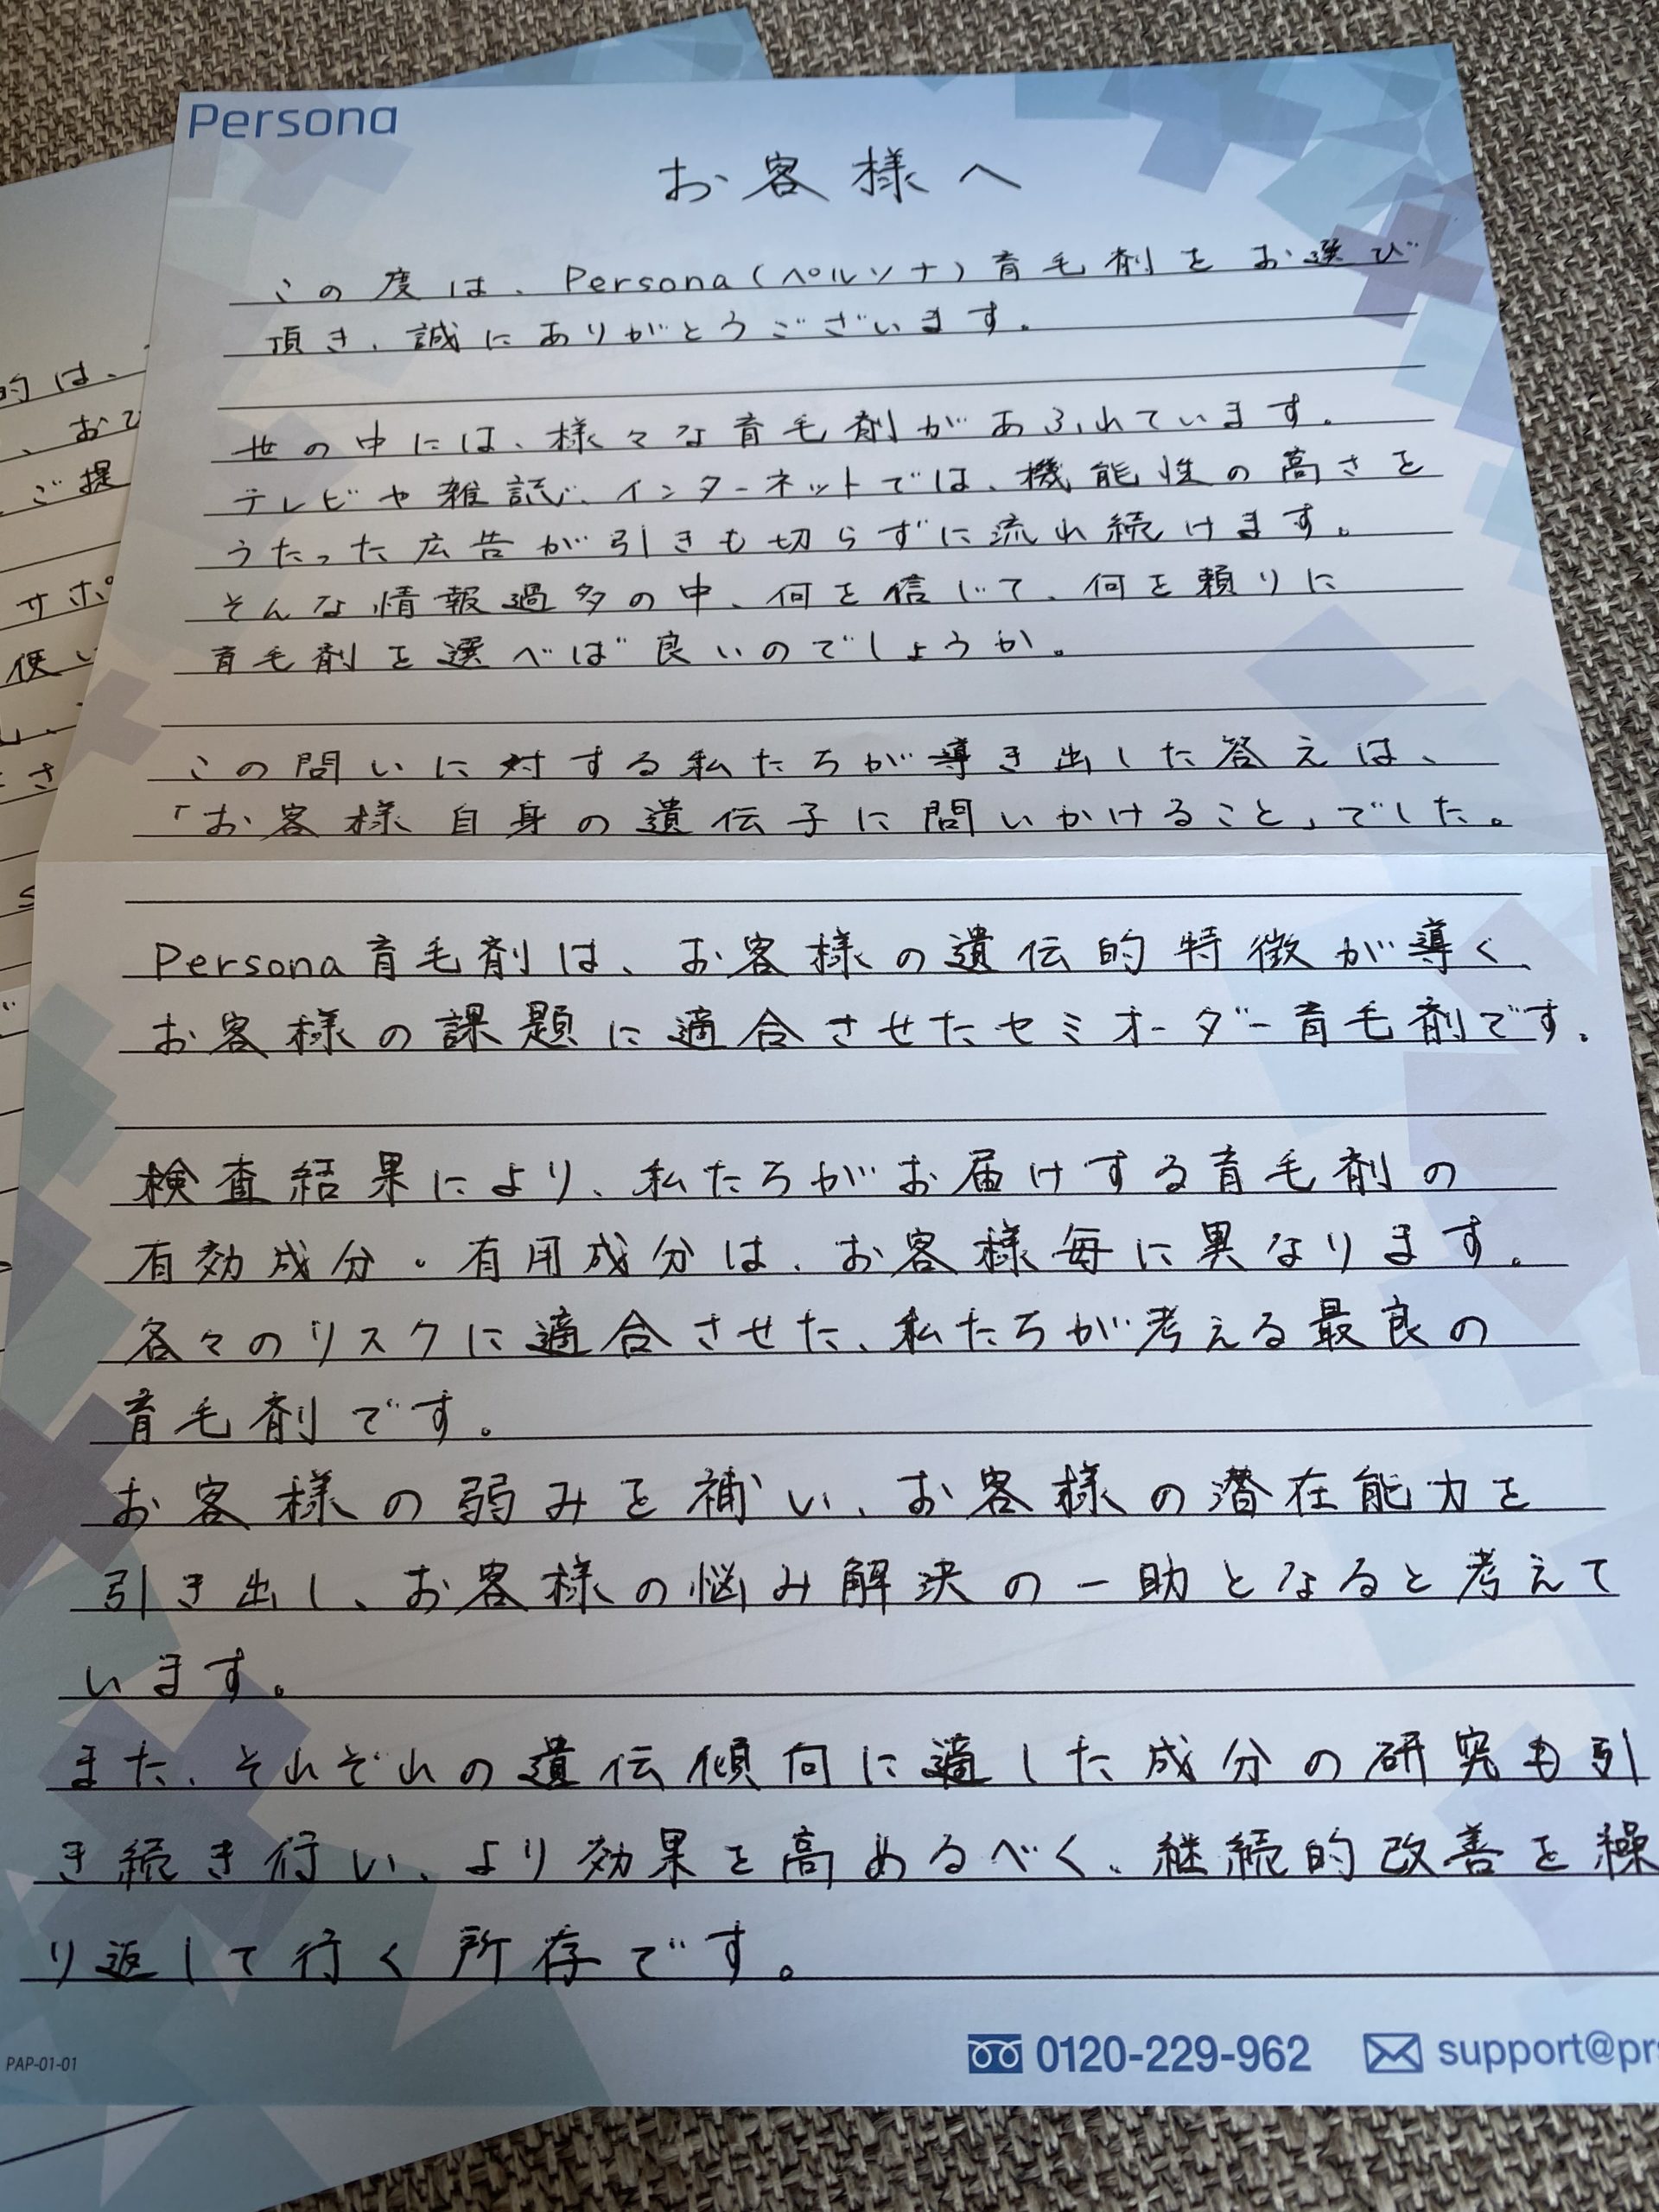 Persona
お客様へ
この度は、Persona(ペルソナ)育毛剤をお選び
頂き、誠にありがとうございます。
世の中には、様々な育毛剤があふれています。
テレビや雑誌、インターネットでは、機能性の高さを
うたった広告が引きも切らずに流れ続けます。
そんな情報過多の中、何を信じて、何を頼りに
育毛剤を選べば良いのでしょうか。
この問いに対する私たちが導き出した答えは、
「お客様自身の遺伝子に問いかけること」でした。
Persona育毛剤は、お客様の遺伝的特徴が導く、
お客様の課題に適合させたセミオーダー育毛剤です。
検査結果により、私たちがお届けする育毛剤の
有効成分・有用成分は、お客様毎に異なります。
各々のリスクに適合させた、私たちが考える最良の
育毛剤です。
お客様の弱みを補い、お客様の潜在能力を
引き出し、お客様の悩み解決の一助となると考えて
います。
また、それぞれの遺伝傾向に適した成分の研究も引
き続き行い、より効果を高めるべく、継続的改善を繰
り返して行く所存です。
0120-229-962 support@pr
PAP-01-01
的は、
、おひ
ご提
サポ
使い